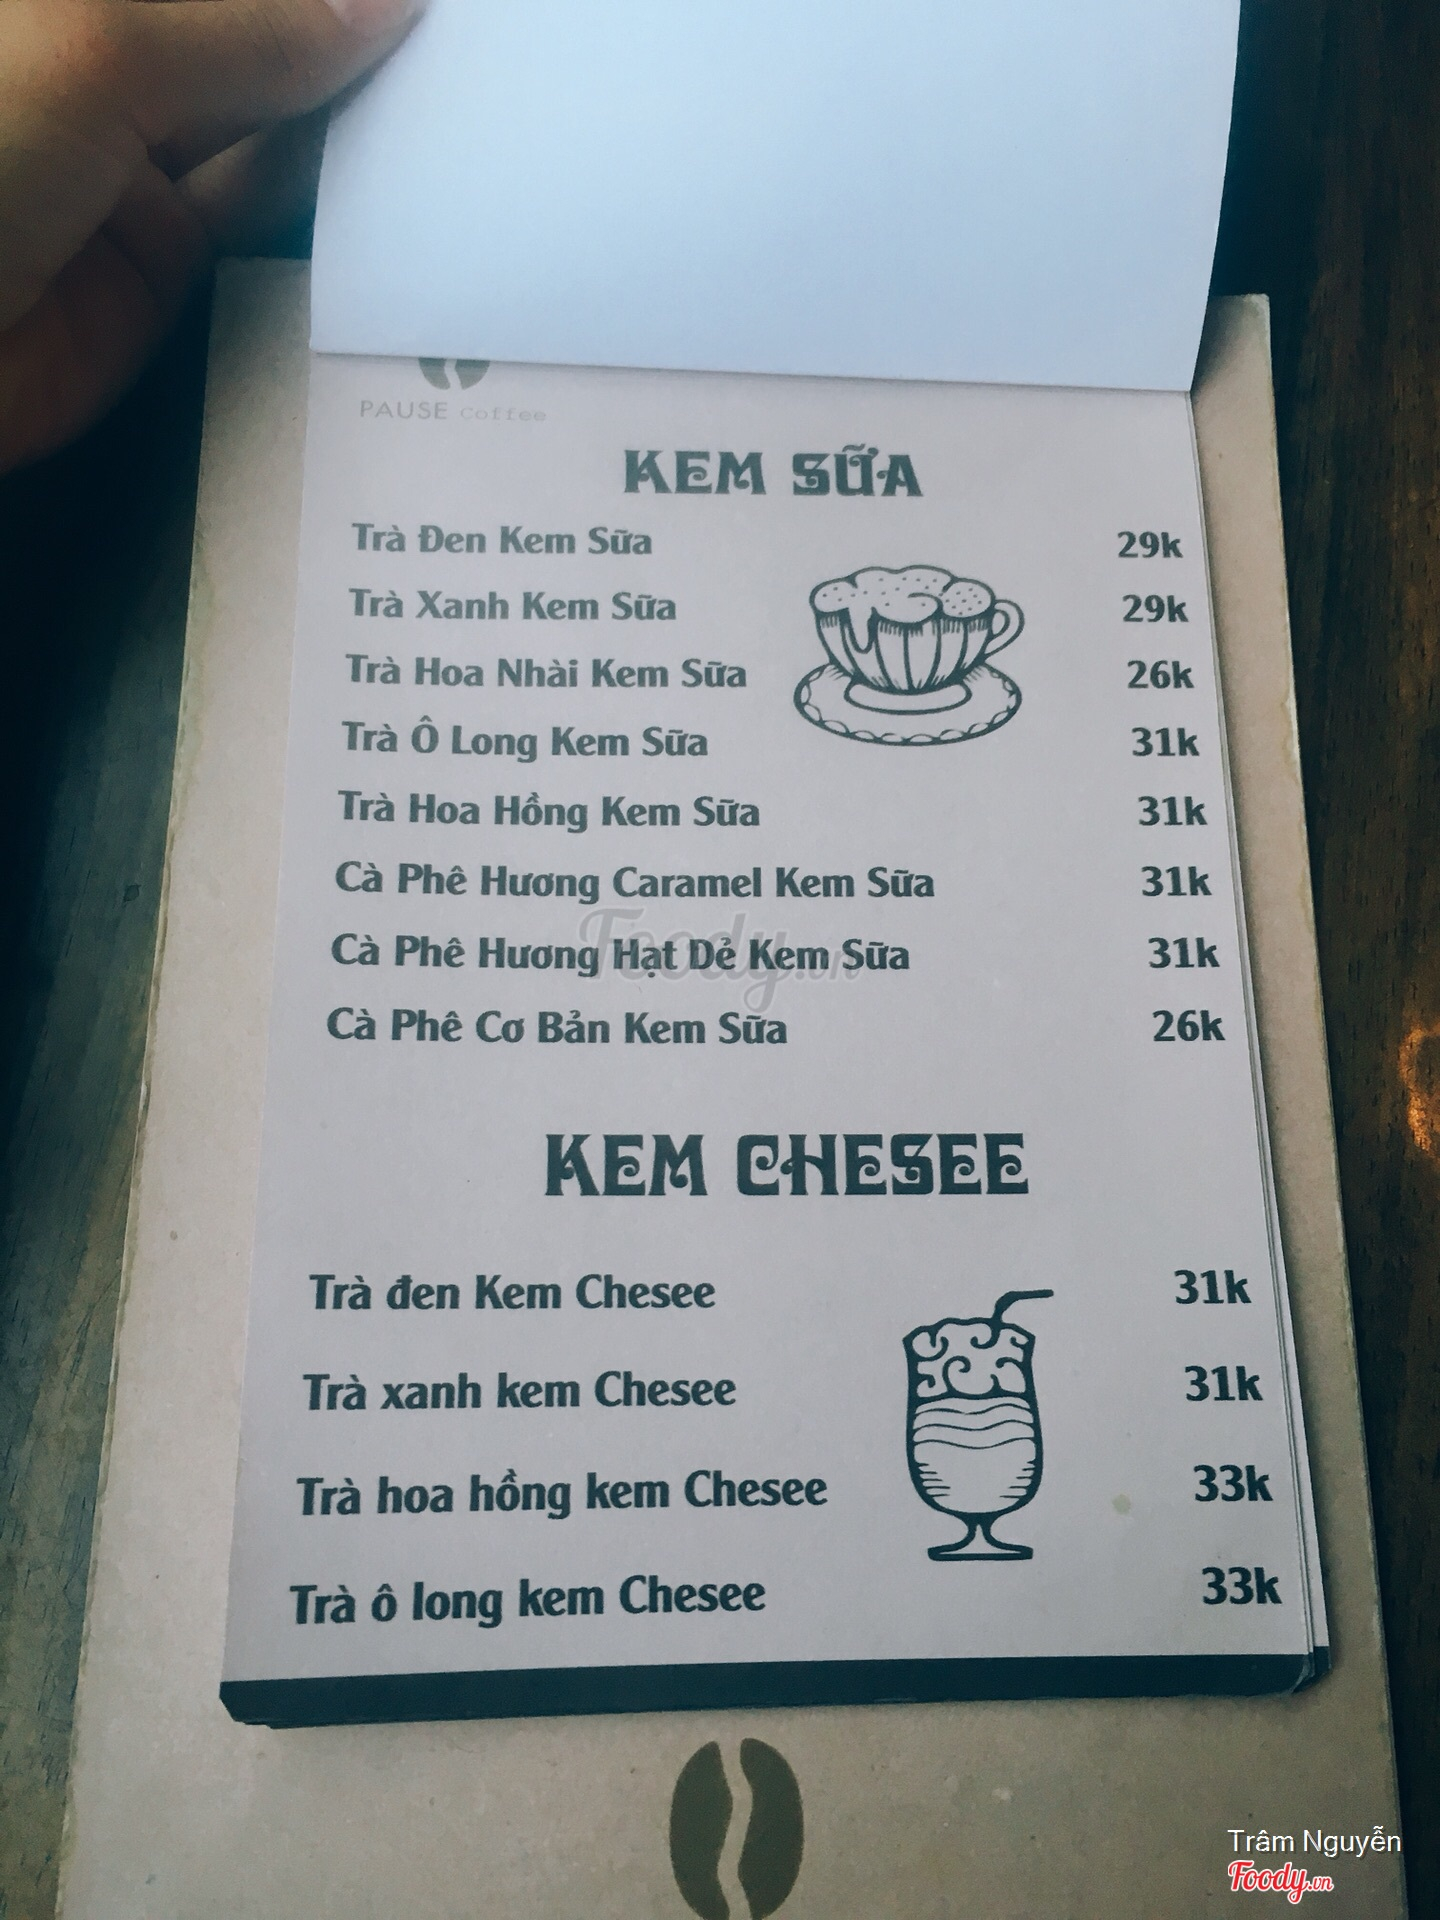 PAUSE Coffee
KEM SỮA
Trà Đen Kem Sữa 29k
Trà Xanh Kem Sữa 29k
Trà Hoa Nhài Kem Sữa 26k
Trà Ô Long Kem Sữa 31k
Trà Hoa Hồng Kem Sữa 31k
Cà Phê Hương Caramel Kem Sữa 31k
Cà Phê Hương Hạt Dẻ Kem Sữa 31k
Foody.vn
Cà Phê Cơ Bản Kem Sữa 26k
KEM CHESEE
Trà đen Kem Chesee 31k
Trà xanh kem Chesee 31k
Trà hoa hồng kem Chesee 33k
Trà ô long kem Chesee 33k
Trâm Nguyễn
Foody.vn